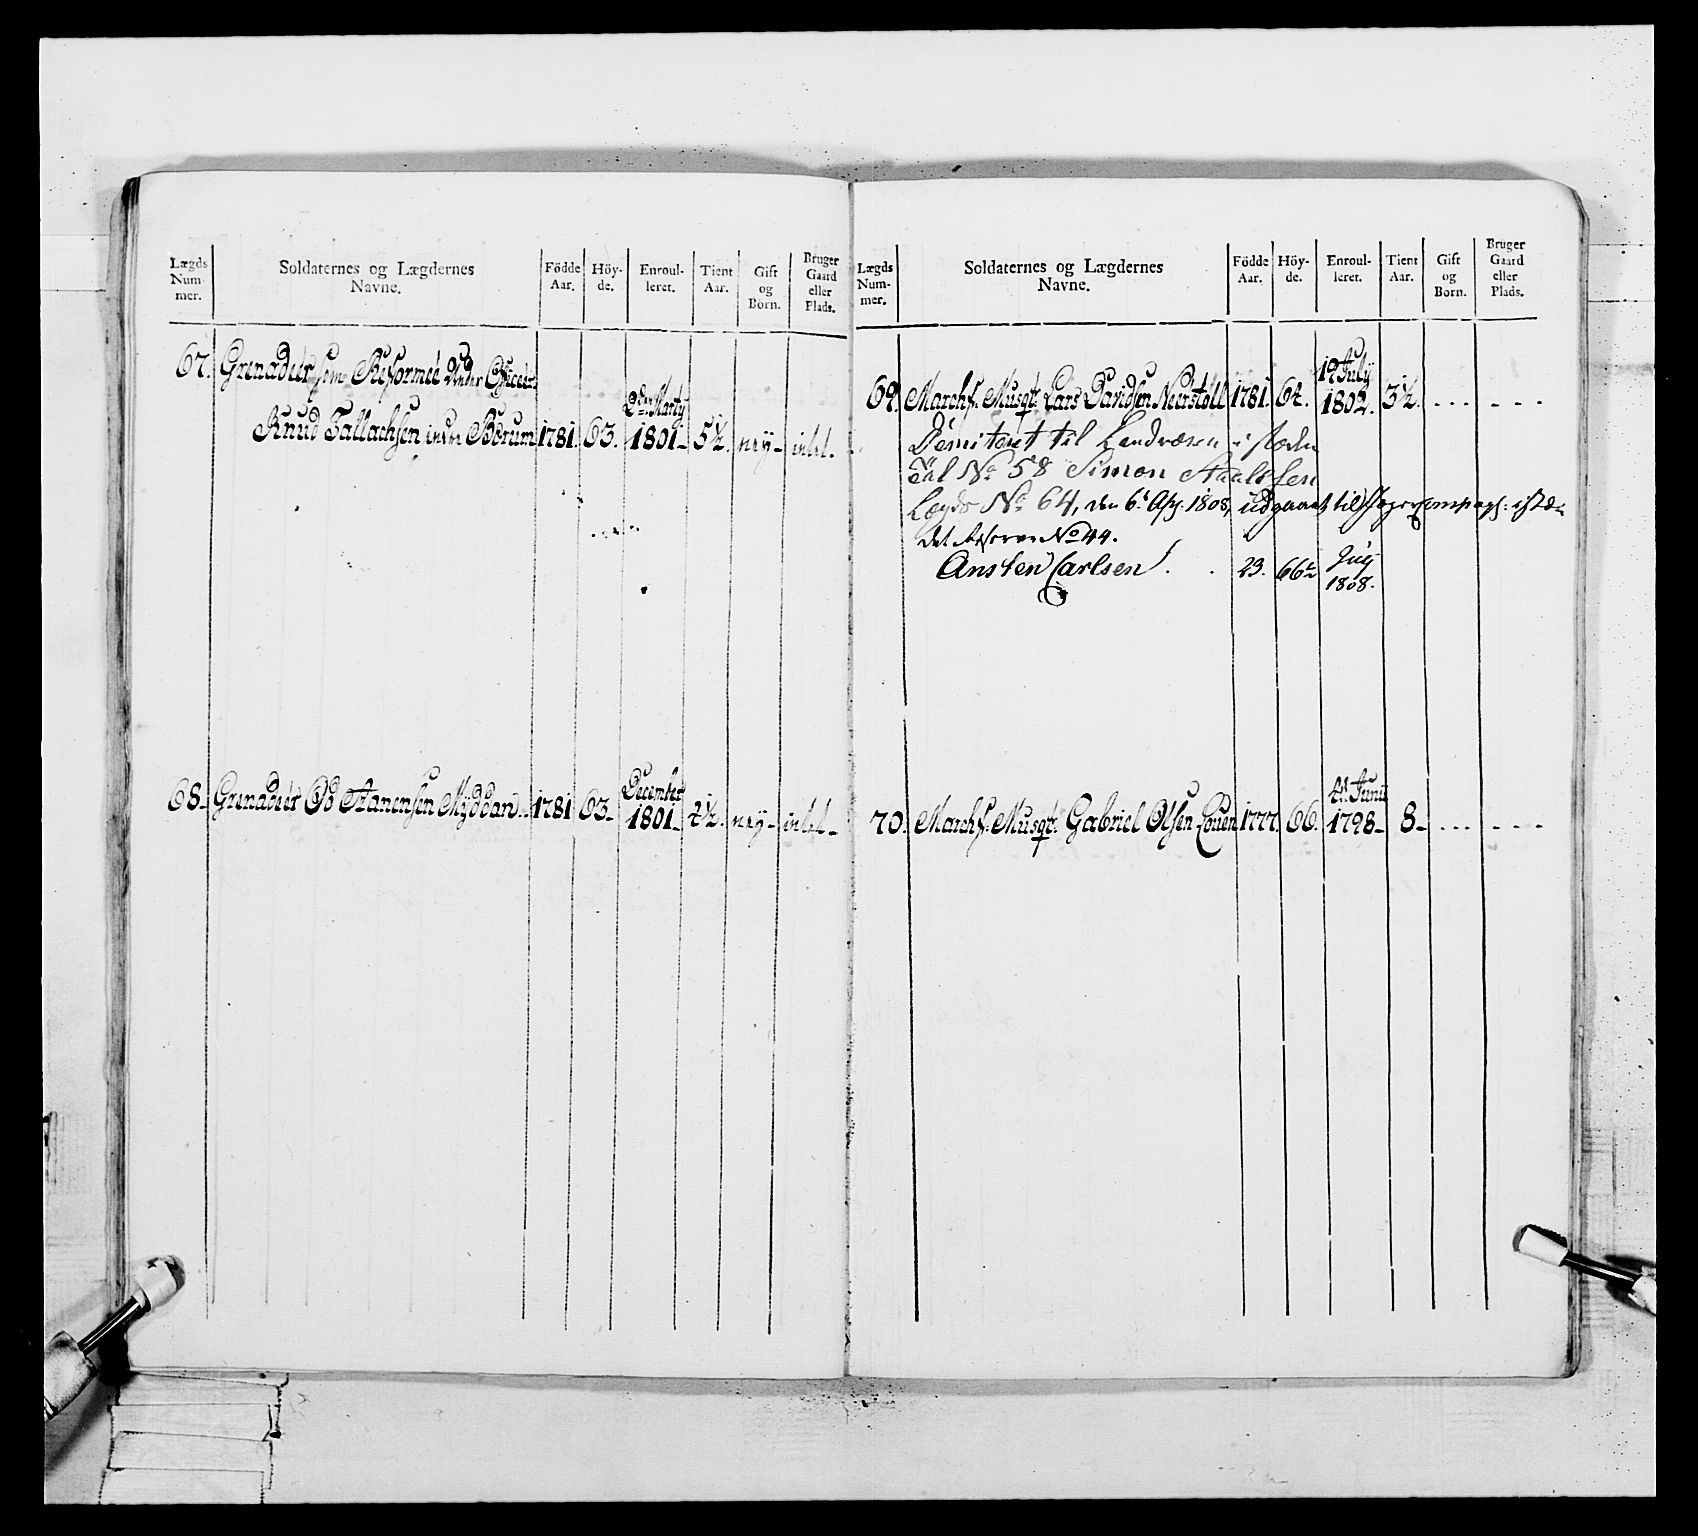 Lægds Num- mer. Soldaternes og Lægdernes Navne. Födde Aar. Höy- de. Enroul- leret. Tient Aar. Gift og Börn. Bruger Gaard eller Plads.
67. Grenadeer som Reformeé Under Officer
Knud Tallachsen indre Börum 1781. 63. 2den Marty 1801- 5½. ney- intet.
68- Grenadeer Od Aanensen Myddan.. 1781 63- December 1801- 4½. ney- intet-
Lægds Num- mer. Soldaternes og Lægdernes Navne. Födde Aar. Höy- de. Enroul- leret. Tient Aar. Gift og Börn. Bruger Gaard eller Plads.
69. Marchf. Musqtr. Lars Davidsen Neerstöll 1781. 64. 19 July 1802. 3½. ... ---
Demiteret til Landværn i stæden
No. 58 Simon
Lægds No. 64, den 6t 1808, udgaaet til Jægercompagt: istæden
det No 44.
Ansten Carlsen. 23. 66 1808.
70. Marchf. Musqtr. Gabriel Olsen 1777. 66. Junii 1798- 8- ... ---